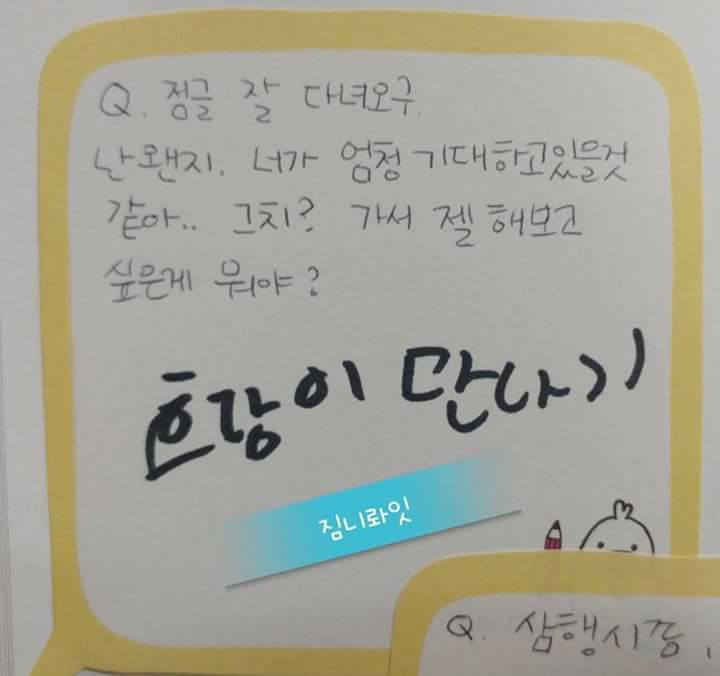 Q. 정글 잘 다녀오구.
난왠지. 너가 엄청 기대하고있을것
같아.. 그치? 가서 젤 해보고
싶은게 뭐야?
호랑이 만나기
짐니롸잇
Q. 삼행시중,